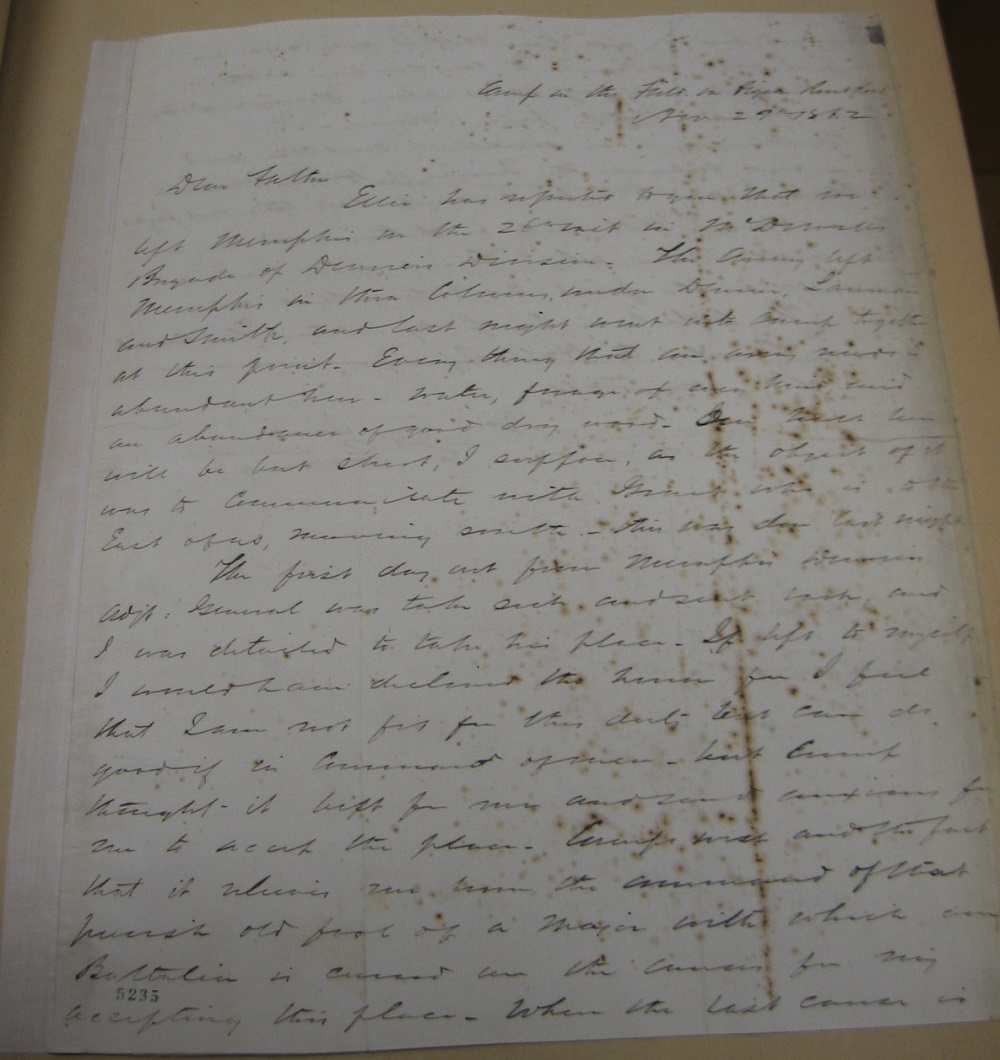 Camp in the Field on Pigeon Roost Road
Nov 29th 1862
Dear Father
Ellis has reported to you that we
left Memphis on the 26th inst in McDowells
Brigade of Denvers Division. The Army left
Memphis in three Columns, under Denver, Lauman
and Smith, and last night went into camp together
at this point. Every thing that an army needs is
abundant here - water, forage of every kind and
an abundance of good dry wood. Our
will be but short, I suppose, as the object of it
was to communicate with Grant who is to the
East of us, moving south. - this was done last night
The first day out from Memphis Denvers
Adjt. General was taken sick and sent back, and
I was detailed to take his place. If left to myself
I would have declined the honor for I feel
that I am not fit for this duty but can do
good if in Command of men - but Cump
thought it best for me and seemed anxious for
me to accept the place. Cumps wish and the fact
that it relieves me from the command of that
old fool of a Major with which our
Battalion is cursed are the causes for my
accepting this place - When the last cause is
5235